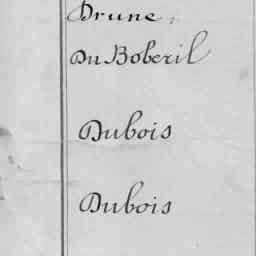 Drune,
Du Boberil
Dubois
Dubois